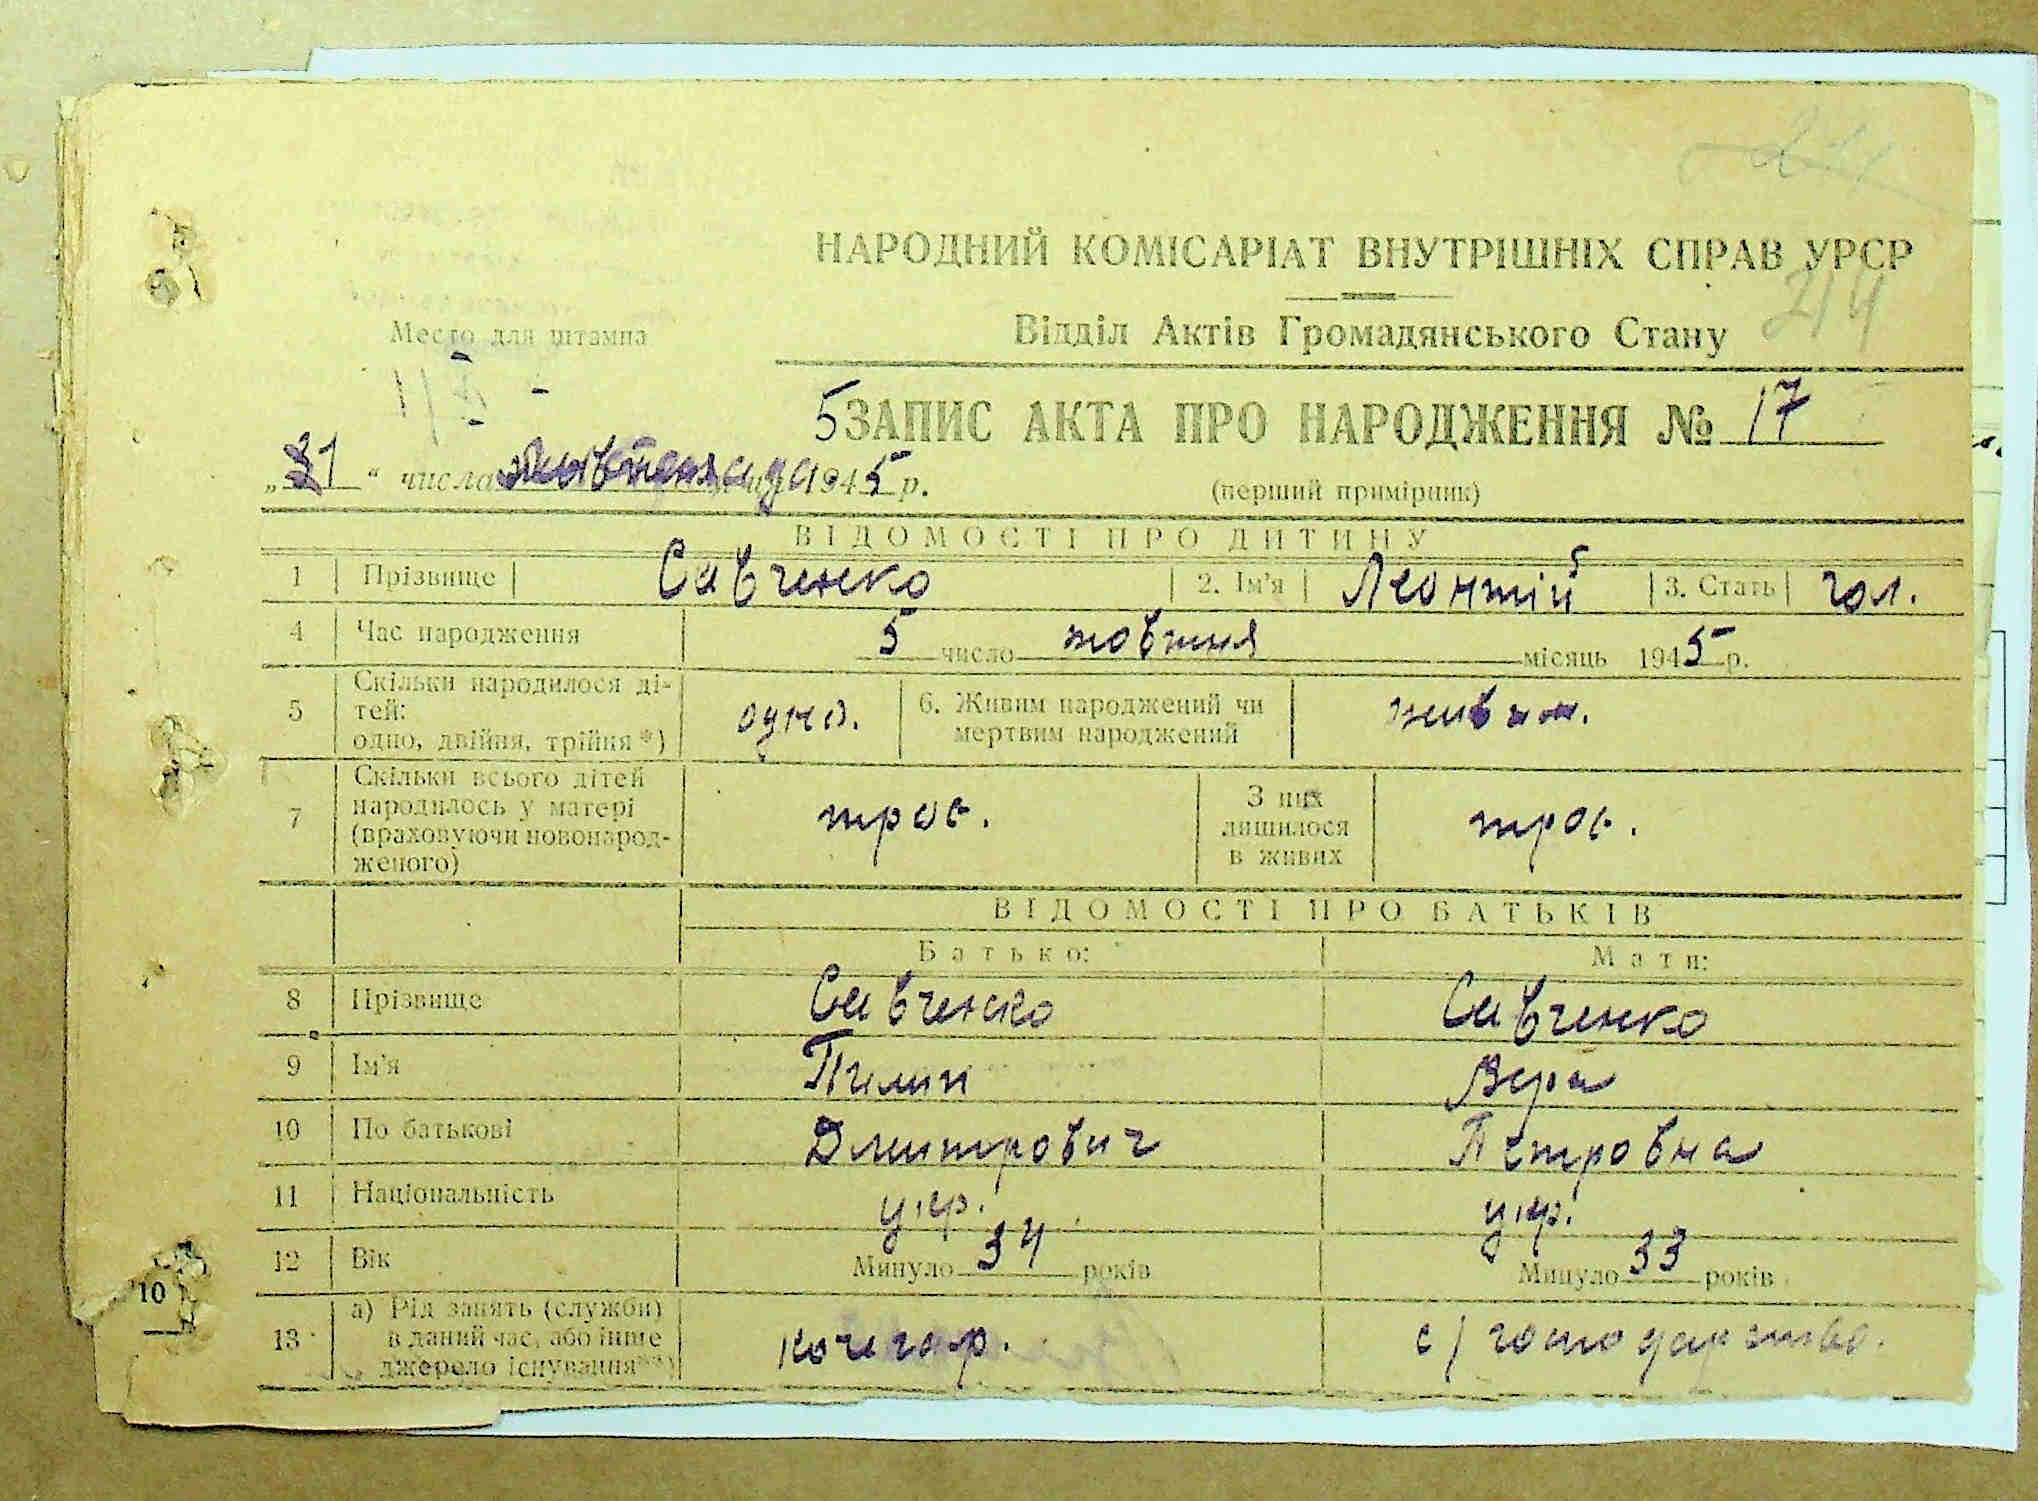 НАРОДНИЙ КОМІСАРІАТ ВНУТРІШНІХ СПРАВ УРСР
244
Место для штампа
Відділ Актів Громадянського Стану
5 ЗАПИС АКТА ПРО НАРОДЖЕННЯ № 17
„31“ числа 1945 р.
(перший примірник)
ВІДОМОСТІ ПРО ДИТИНУ
1 Прізвище Савченко 2. Ім'я Леонтій 3. Стать чол.
4 Час народження 5 число жовтня місяць 1945 р.
5 Скільки народилося ді-
тей:
одно, двійня, трійня *) одно.
6. Живим народжений чи
мертвим народжений живим.
7 Скільки всього дітей
народилось у матері
(враховуючи новонарод-
женого) троє.
З них
лишилося
в живих троє.
ВІДОМОСТІ ПРО БАТЬКІВ
Батько: Мати:
8 Прізвище Савченко Савченко
9 Ім'я Пилип Вера
10 По батькові Дмитрович Петровна
11 Національність укр. укр.
12 Вік Минуло 34 років Минуло 33 років
13 а) Рід занять (служби)
в даний час, або інше
джерело існування**) кочегар. с/господарство.
10